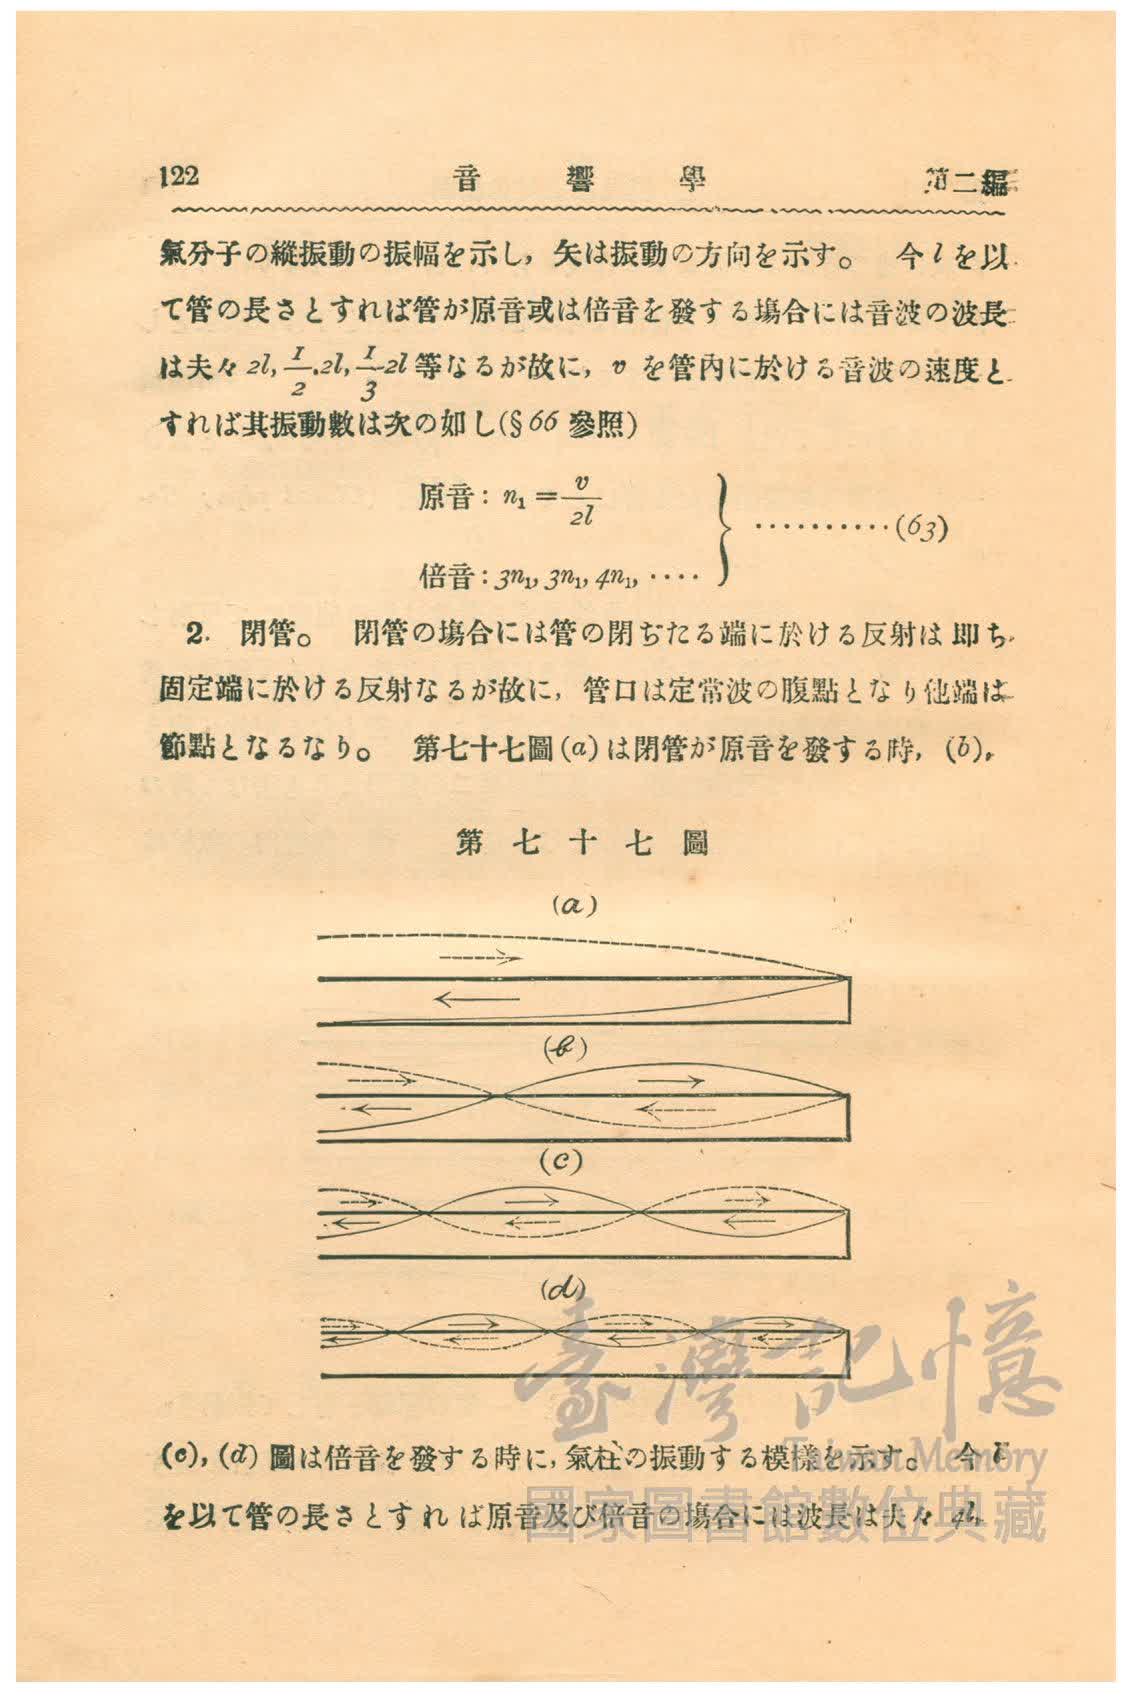 122 音響學 第二編
氣分子の縱振動の振幅を示し，矢は振動の方向を示す。 今 l を以
て管の長さとすれば管が原音或は倍音を發する塲合には音波の波長
は夫々 2l, 1/2.2l, 1/3 2l 等なるが故に，v を管內に於ける音波の速度と
すれば其振動數は次の如し(§66 參照)
原音：n₁ = v/2l
··········(63)
倍音：3n₁, 3n₁, 4n₁, ····
2. 閉管。 閉管の塲合には管の閉ぢたる端に於ける反射は即ち
固定端に於ける反射なるが故に，管口は定常波の腹點となり他端は
節點となるなり。 第七十七圖(a)は閉管が原音を發する時，(b),
第七十七圖
(a)
(b)
(c)
(d)
(c), (d) 圖は倍音を發する時に，氣柱の振動する模樣を示す。 今
を以て管の長さとすれば原音及び倍音の塲合には波長は夫々 4l,
臺灣記憶
Taiwan Memory
國家圖書館數位典藏